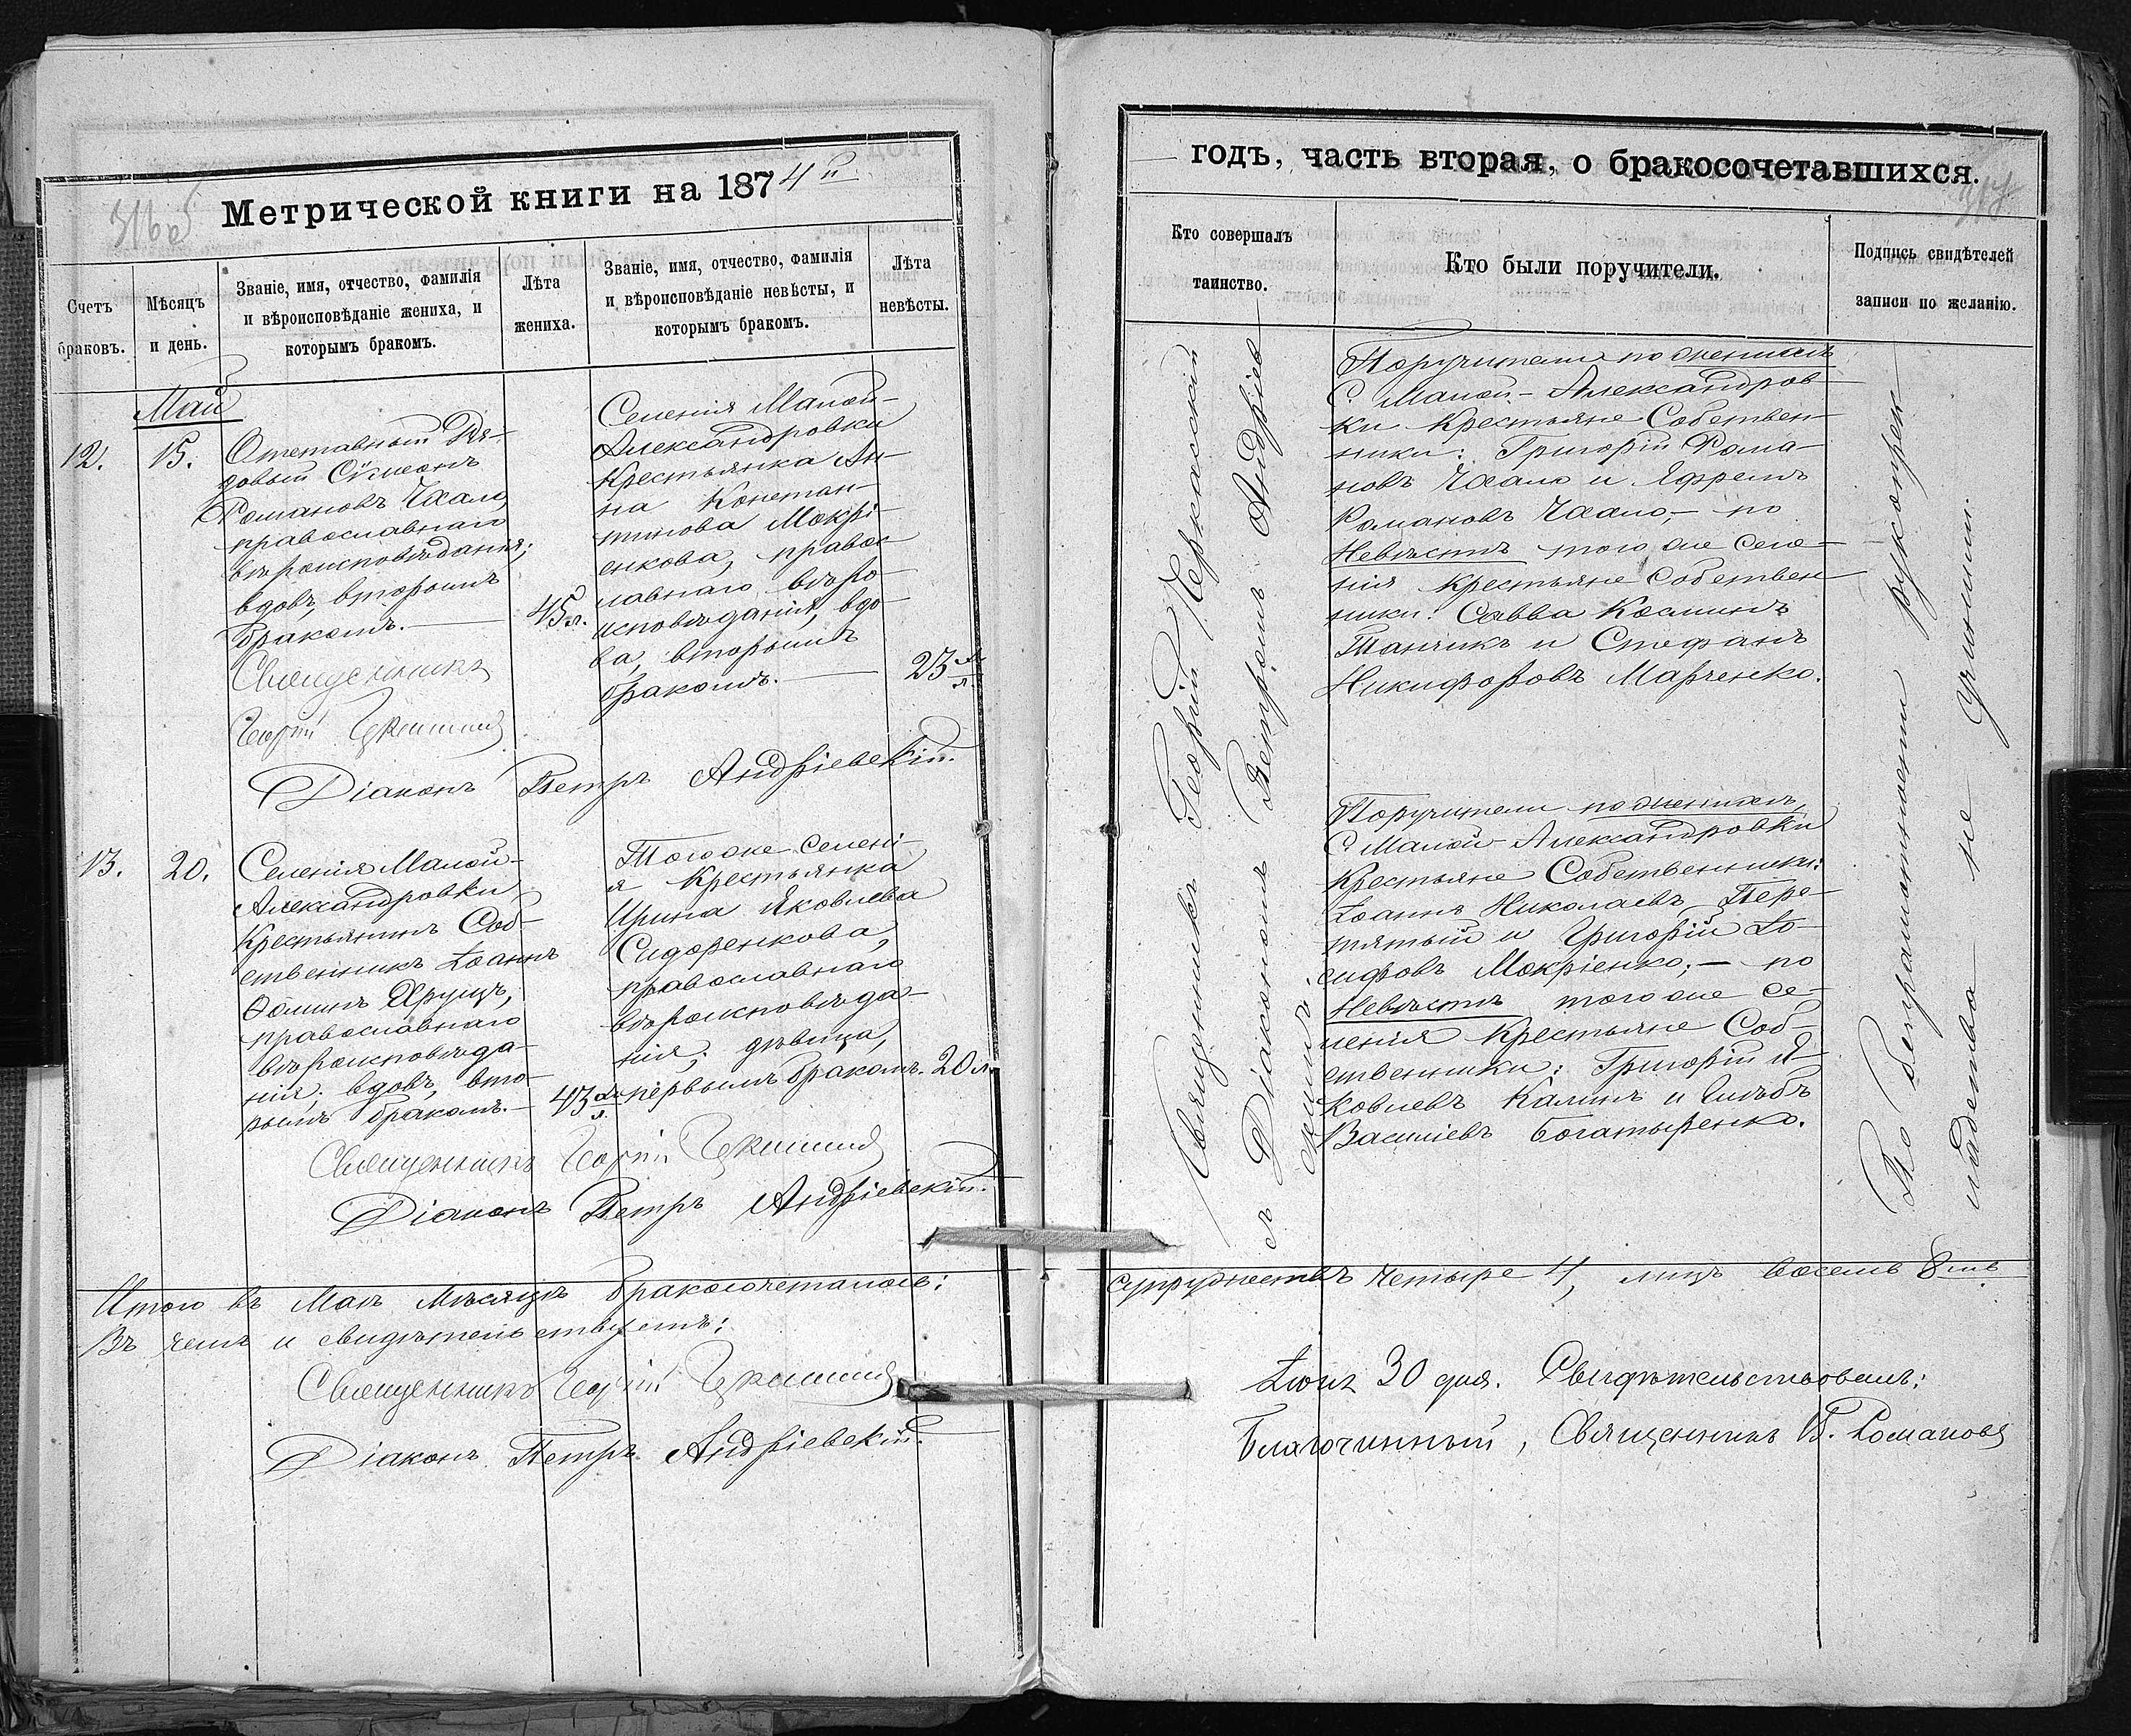 Метрической книги на 1874 й
316 об
Счетъ
браковъ.
Мѣсяцъ
и день.
Званіе, имя, отчество, фамилія
и вѣроисповѣданіе жениха, и
которымъ бракомъ.
Лѣта
жениха.
Званіе, имя, отчество, фамилія
и вѣроисповѣданіе невѣсты, и
которымъ бракомъ.
Лѣта
невѣсты.
Май
12.
15.
Отставный Ря-
довый Сѵмеонъ
Романовъ Чхало,
православнаго
вѣроисповѣданія;
вдовъ, вторымъ
бракомъ. —
45 л.
Селенія Малой-
Александровки
Крестьянка Ан-
на Констан-
тинова Мокрі-
енкова, правос
лавнаго вѣро-
исповѣданія, вдо-
ва, вторымъ
бракомъ. —
23
Священникъ
Георгій
Діаконъ Петръ Андріевскій.
13.
20.
Селенія Малой-
Александровки
Крестьянинъ Соб-
ственникъ Іоаннъ
Ѳоминъ Хрущъ,
православнаго
вѣроисповѣда-
нія; вдовъ, вто-
рымъ бракомъ. —
43
Тогоже селені-
я Крестьянка
Ирина Яковлева
Сидоренкова,
православнаго
вѣроисповѣда-
нія; дѣвица,
первымъ бракомъ.
20 л.
Священникъ Георгій
Діаконъ Петръ Андріевскій.
Итого въ Маѣ Мѣсяцѣ бракосочеталось:
Въ чемъ и свидѣтельствуемъ:
Священникъ Георгій
Діаконъ Петръ Андріевскій.
годъ, часть вторая, о бракосочетавшихся.
317
Кто совершалъ
таинство.
Кто были поручители.
Подпись свидѣтелей
записи по желанію.
Священникъ Георгій Черкасскій
съ Діакономъ Петромъ Андріев
скимъ.
Поручители по женихѣ
С. Малой-Александров-
ки Крестьяне Собствен-
ники: Григорій Рома-
новъ Чхало и Ефремъ
Романовъ Чхало, — по
Невѣстѣ того же селе-
нія Крестьяне Собствен
ники: Савва Косминъ
Танчикъ и Стефанъ
Никифоровъ Марченко.
Поручители по женихѣ,
С. Малой-Александровки
Крестьяне Собственники:
Іоаннъ Николаевъ Пере-
пятый и Григорій Іо-
сифовъ Мокріенко; — по
Невѣстѣ того же се-
ленія Крестьяне Соб-
ственники: Григорій Я-
ковлевъ Калинъ и Глѣбъ
Василіевъ Богатыренко.
По безграмотности рукопри
кладства не учинили.
супружествъ четыре 4, лицъ восемь 8мь
Іюня 30 дня. Свидѣтельствовалъ:
Благочинный, Священникъ В. Романовъ